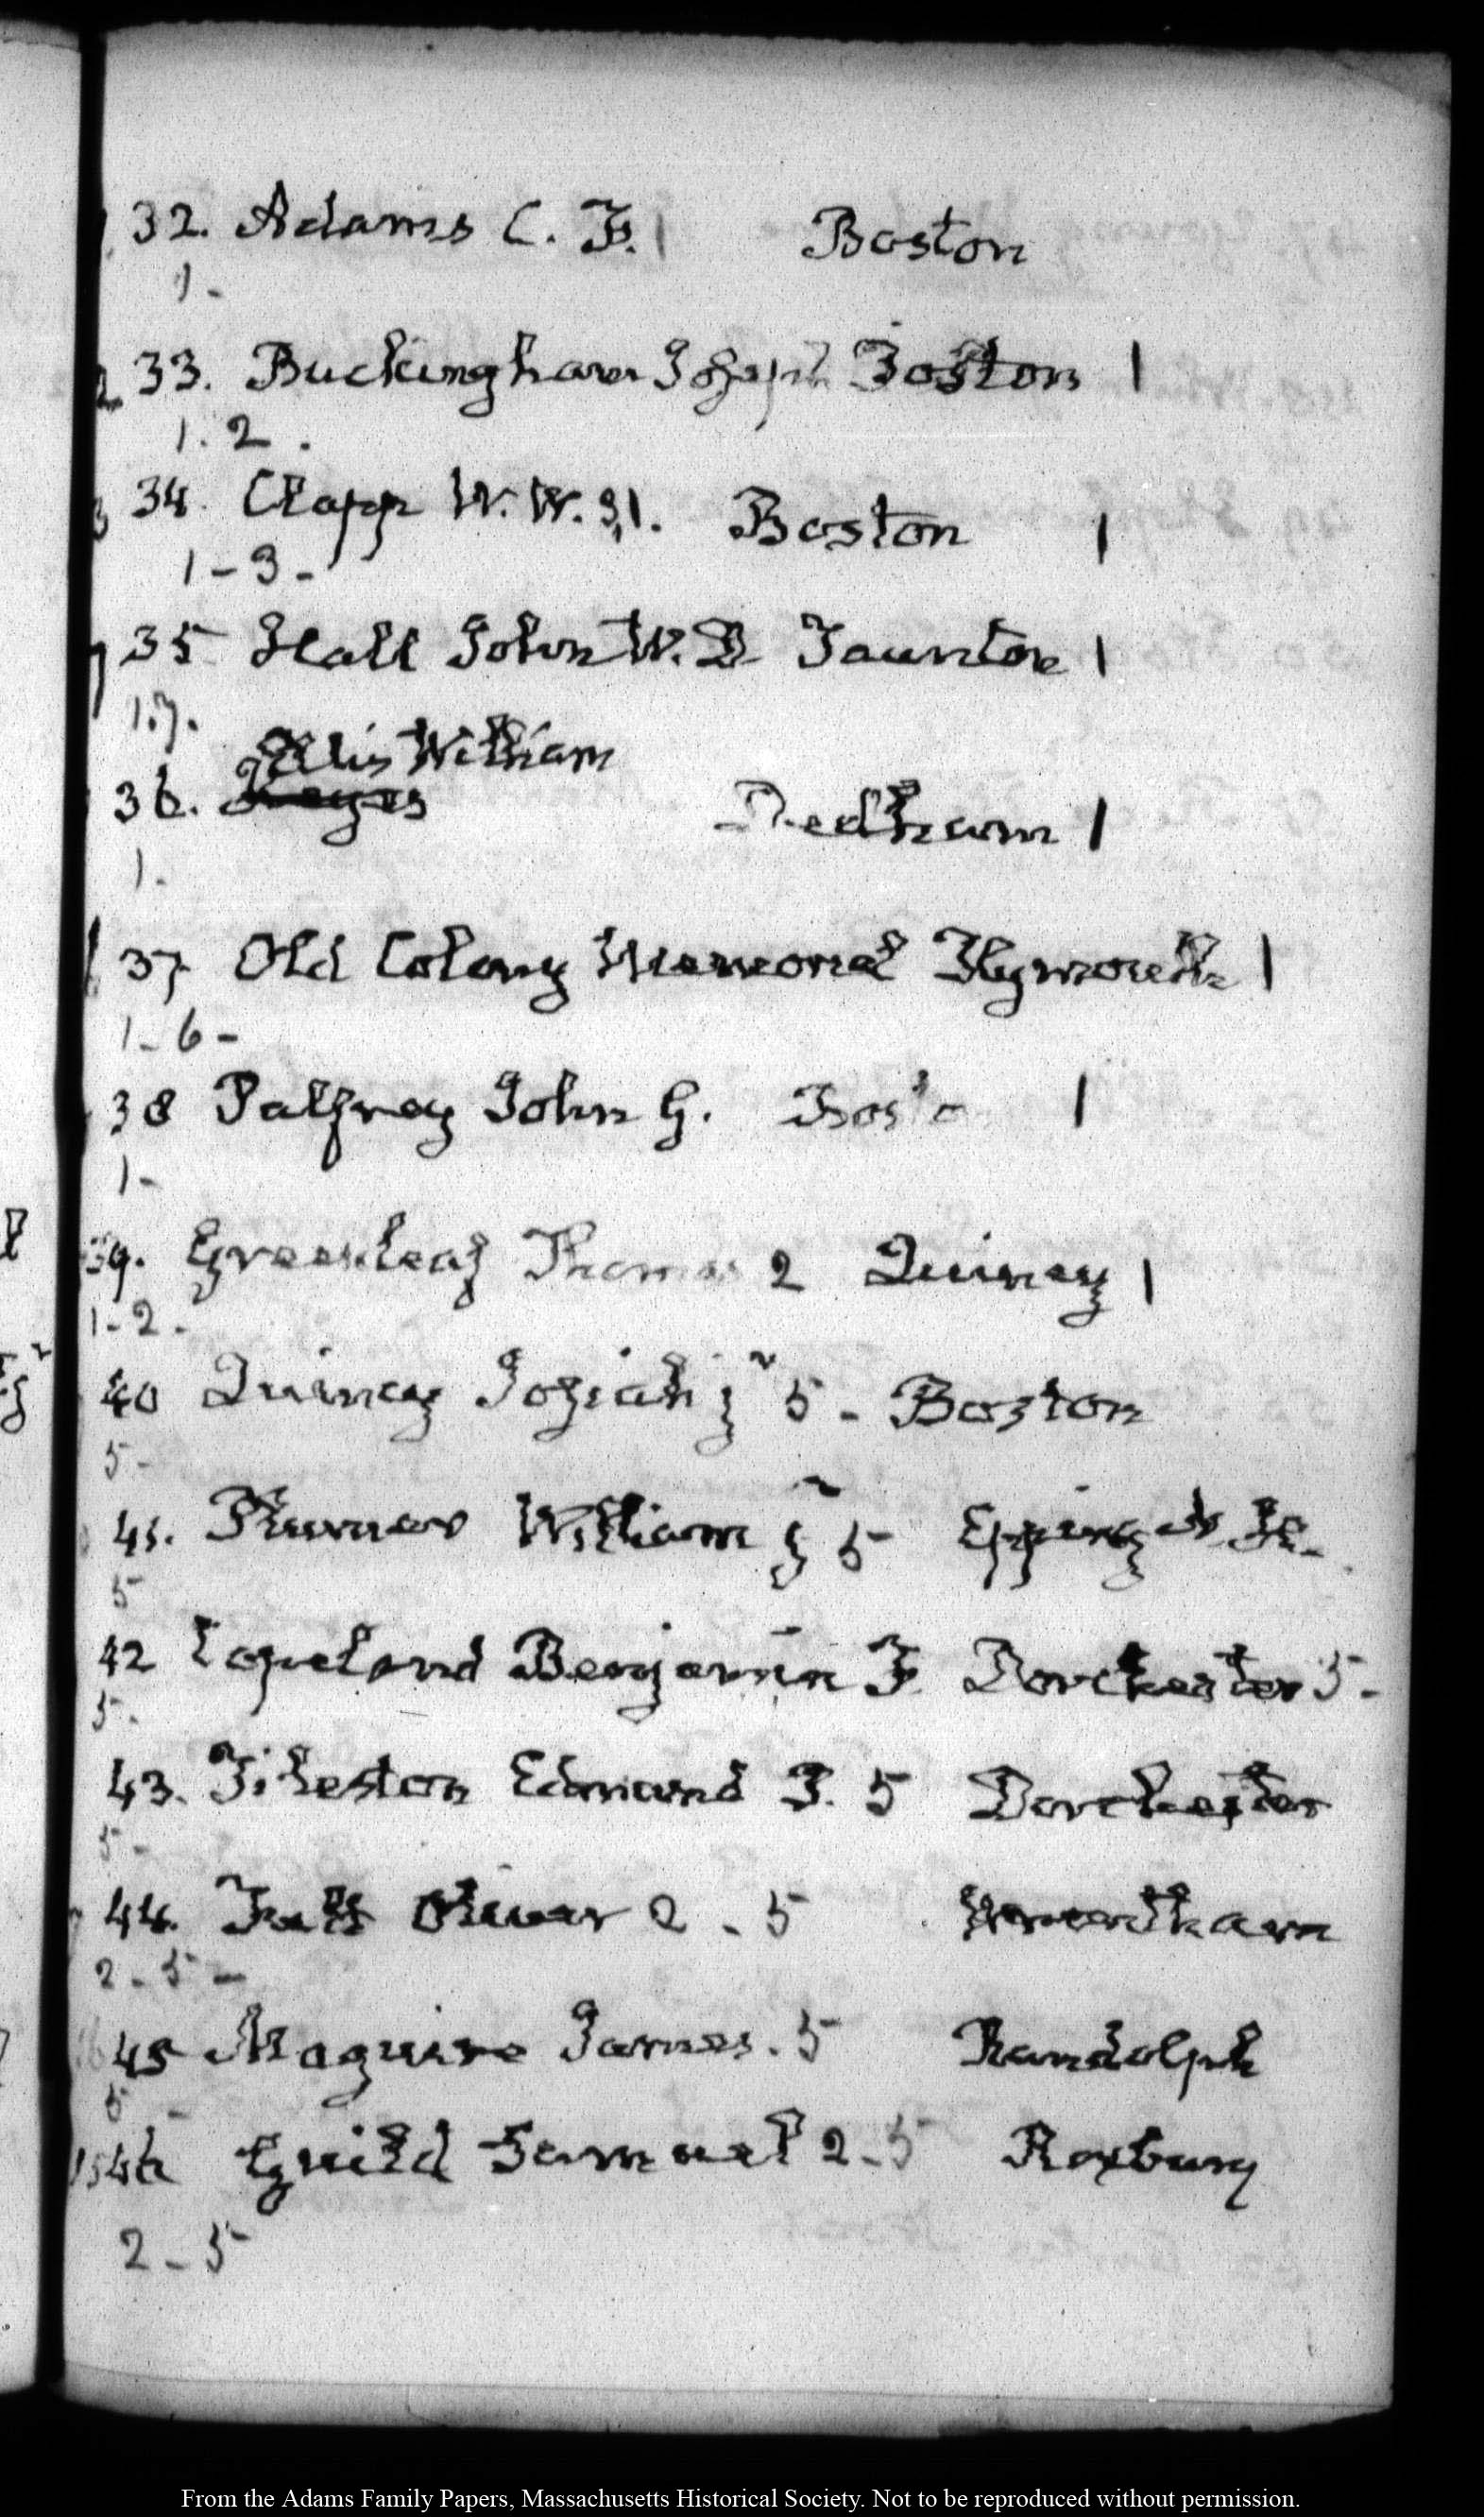 32. Adams C. F. | Boston
1-
33. Buckingham Joseph Boston |
1. 2.
34. Clapp W. W. 3,1. Boston |
1-3-
35 Hall John W. D Taunton |
1.7.
Ellis William
36. Keyes Dedham |
1.
37 Old Colony Memorial Plymouth |
1-6-
38 Palfrey John G. Boston |
1-
39. Greenleaf Thomas 2 Quincy |
1-2.
40 Quincy Josiah jr 5- Boston
5-
41. Plumer William jr 5 Epping N. H.
5
42 Copeland Benjamin F. Dorchester 5-
5.
43. Tileston Edmund P. 5 Dorchester
5-
44. Oliver 2-5 Wrentham
2-5-
45 Maguire James. 5 Randolph
5-
46 Guild Samuel 2-5 Roxbury
2-5
From the Adams Family Papers, Massachusetts Historical Society. Not to be reproduced without permission.